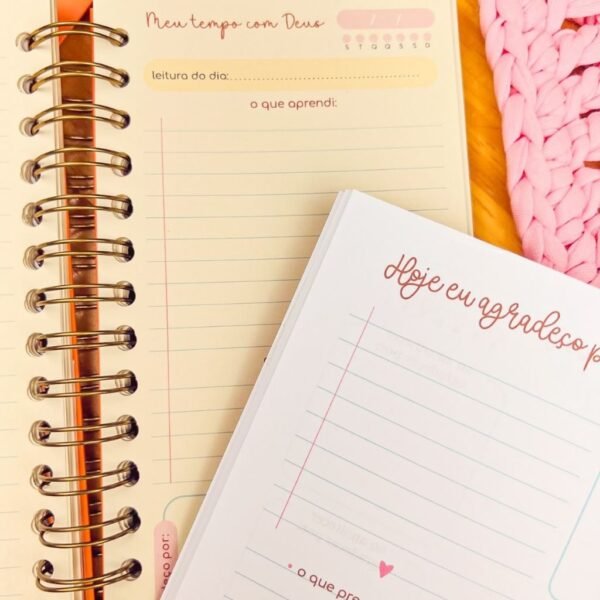 Meu tempo com Deus
/ /
S T Q Q S S D
leitura do dia:
o que aprendi:
Hoje eu agradeço p
o que pre
ço por: